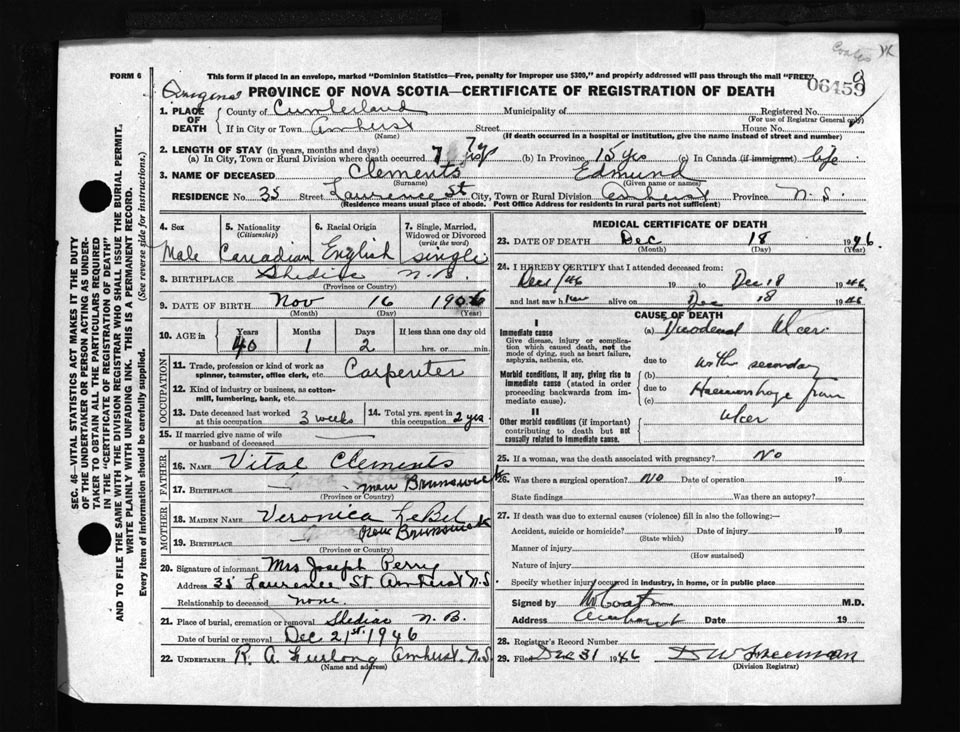 Coates
FORM 6
This form if placed in an envelope, marked "Dominion Statistics—Free, penalty for improper use $300," and properly addressed will pass through the mail "FREE"
06459
PROVINCE OF NOVA SCOTIA—CERTIFICATE OF REGISTRATION OF DEATH
1. PLACE OF DEATH
County of Cumberland Municipality of Registered No.
(For use of Registrar General only)
If in City or Town Amherst Street House No.
(Name) (If death occurred in a hospital or institution, give the name instead of street and number)
2. LENGTH OF STAY (in years, months and days)
(a) In City, Town or Rural Division where death occurred 7 yrs (b) In Province 15 yrs (c) In Canada (if immigrant) life
3. NAME OF DECEASED Clements Edmund
(Surname) (Given name or names)
RESIDENCE No. 35 Street Laurence St City, Town or Rural Division Amherst Province N.S.
(Residence means usual place of abode. Post Office Address for residents in rural parts not sufficient)
4. Sex Male
5. Nationality (Citizenship) Canadian
6. Racial Origin English
7. Single, Married, Widowed or Divorced (write the word) single
8. BIRTHPLACE Shediac N.B.
(Province or Country)
9. DATE OF BIRTH Nov 16 1906
(Month) (Day) (Year)
10. AGE in Years Months Days If less than one day old
40 1 2 hrs. or min.
OCCUPATION
11. Trade, profession or kind of work as spinner, teamster, office clerk, etc. Carpenter
12. Kind of industry or business, as cotton-mill, lumbering, bank, etc.
13. Date deceased last worked at this occupation 3 weeks
14. Total yrs. spent in this occupation 2 yrs.
15. If married give name of wife or husband of deceased
FATHER
16. NAME Vital Clements
17. BIRTHPLACE New Brunswick
(Province or Country)
MOTHER
18. MAIDEN NAME Veronica LeBel
19. BIRTHPLACE New Brunswick
(Province or Country)
20. Signature of informant Mrs Joseph Perry
Address 35 Laurence St Amherst N.S.
Relationship to deceased none.
21. Place of burial, cremation or removal Shediac N.B.
Date of burial or removal Dec 21st 1946
22. UNDERTAKER R. A. Furlong Amherst. N.S
(Name and address)
MEDICAL CERTIFICATE OF DEATH
23. DATE OF DEATH Dec 18 1946
(Month) (Day) (Year)
24. I HEREBY CERTIFY that I attended deceased from:
Dec 1/46 19 to Dec 18 1946
and last saw him alive on Dec 18 1946
CAUSE OF DEATH
I
Immediate cause
Give disease, injury or complication which caused death, not the mode of dying, such as heart failure, asphyxia, asthenia, etc.
(a) Duodenal Ulcer
due to
Morbid conditions, if any, giving rise to immediate cause (stated in order proceeding backwards from immediate cause).
(b) with secondary
due to
(c) Haemorrhage from
II
Other morbid conditions (if important) contributing to death but not causally related to immediate cause.
ulcer
25. If a woman, was the death associated with pregnancy? No
26. Was there a surgical operation? No Date of operation 19
State findings Was there an autopsy?
27. If death was due to external causes (violence) fill in also the following:—
Accident, suicide or homicide? Date of injury 19
(State which)
Manner of injury
(How sustained)
Nature of injury
Specify whether injury occurred in industry, in home, or in public place
Signed by M.D.
Address Amherst Date 19
28. Registrar's Record Number
29. Filed Dec 31 1946 D W Freeman
(Division Registrar)
SEC. 46—VITAL STATISTICS ACT MAKES IT THE DUTY
OF THE UNDERTAKER OR PERSON ACTING AS UNDER-
TAKER TO OBTAIN ALL THE PARTICULARS REQUIRED
IN THE "CERTIFICATE OF REGISTRATION OF DEATH"
AND TO FILE THE SAME WITH THE DIVISION REGISTRAR WHO SHALL ISSUE THE BURIAL PERMIT.
WRITE PLAINLY WITH UNFADING INK. THIS IS A PERMANENT RECORD.
Every item of information should be carefully supplied. (See reverse side for instructions.)